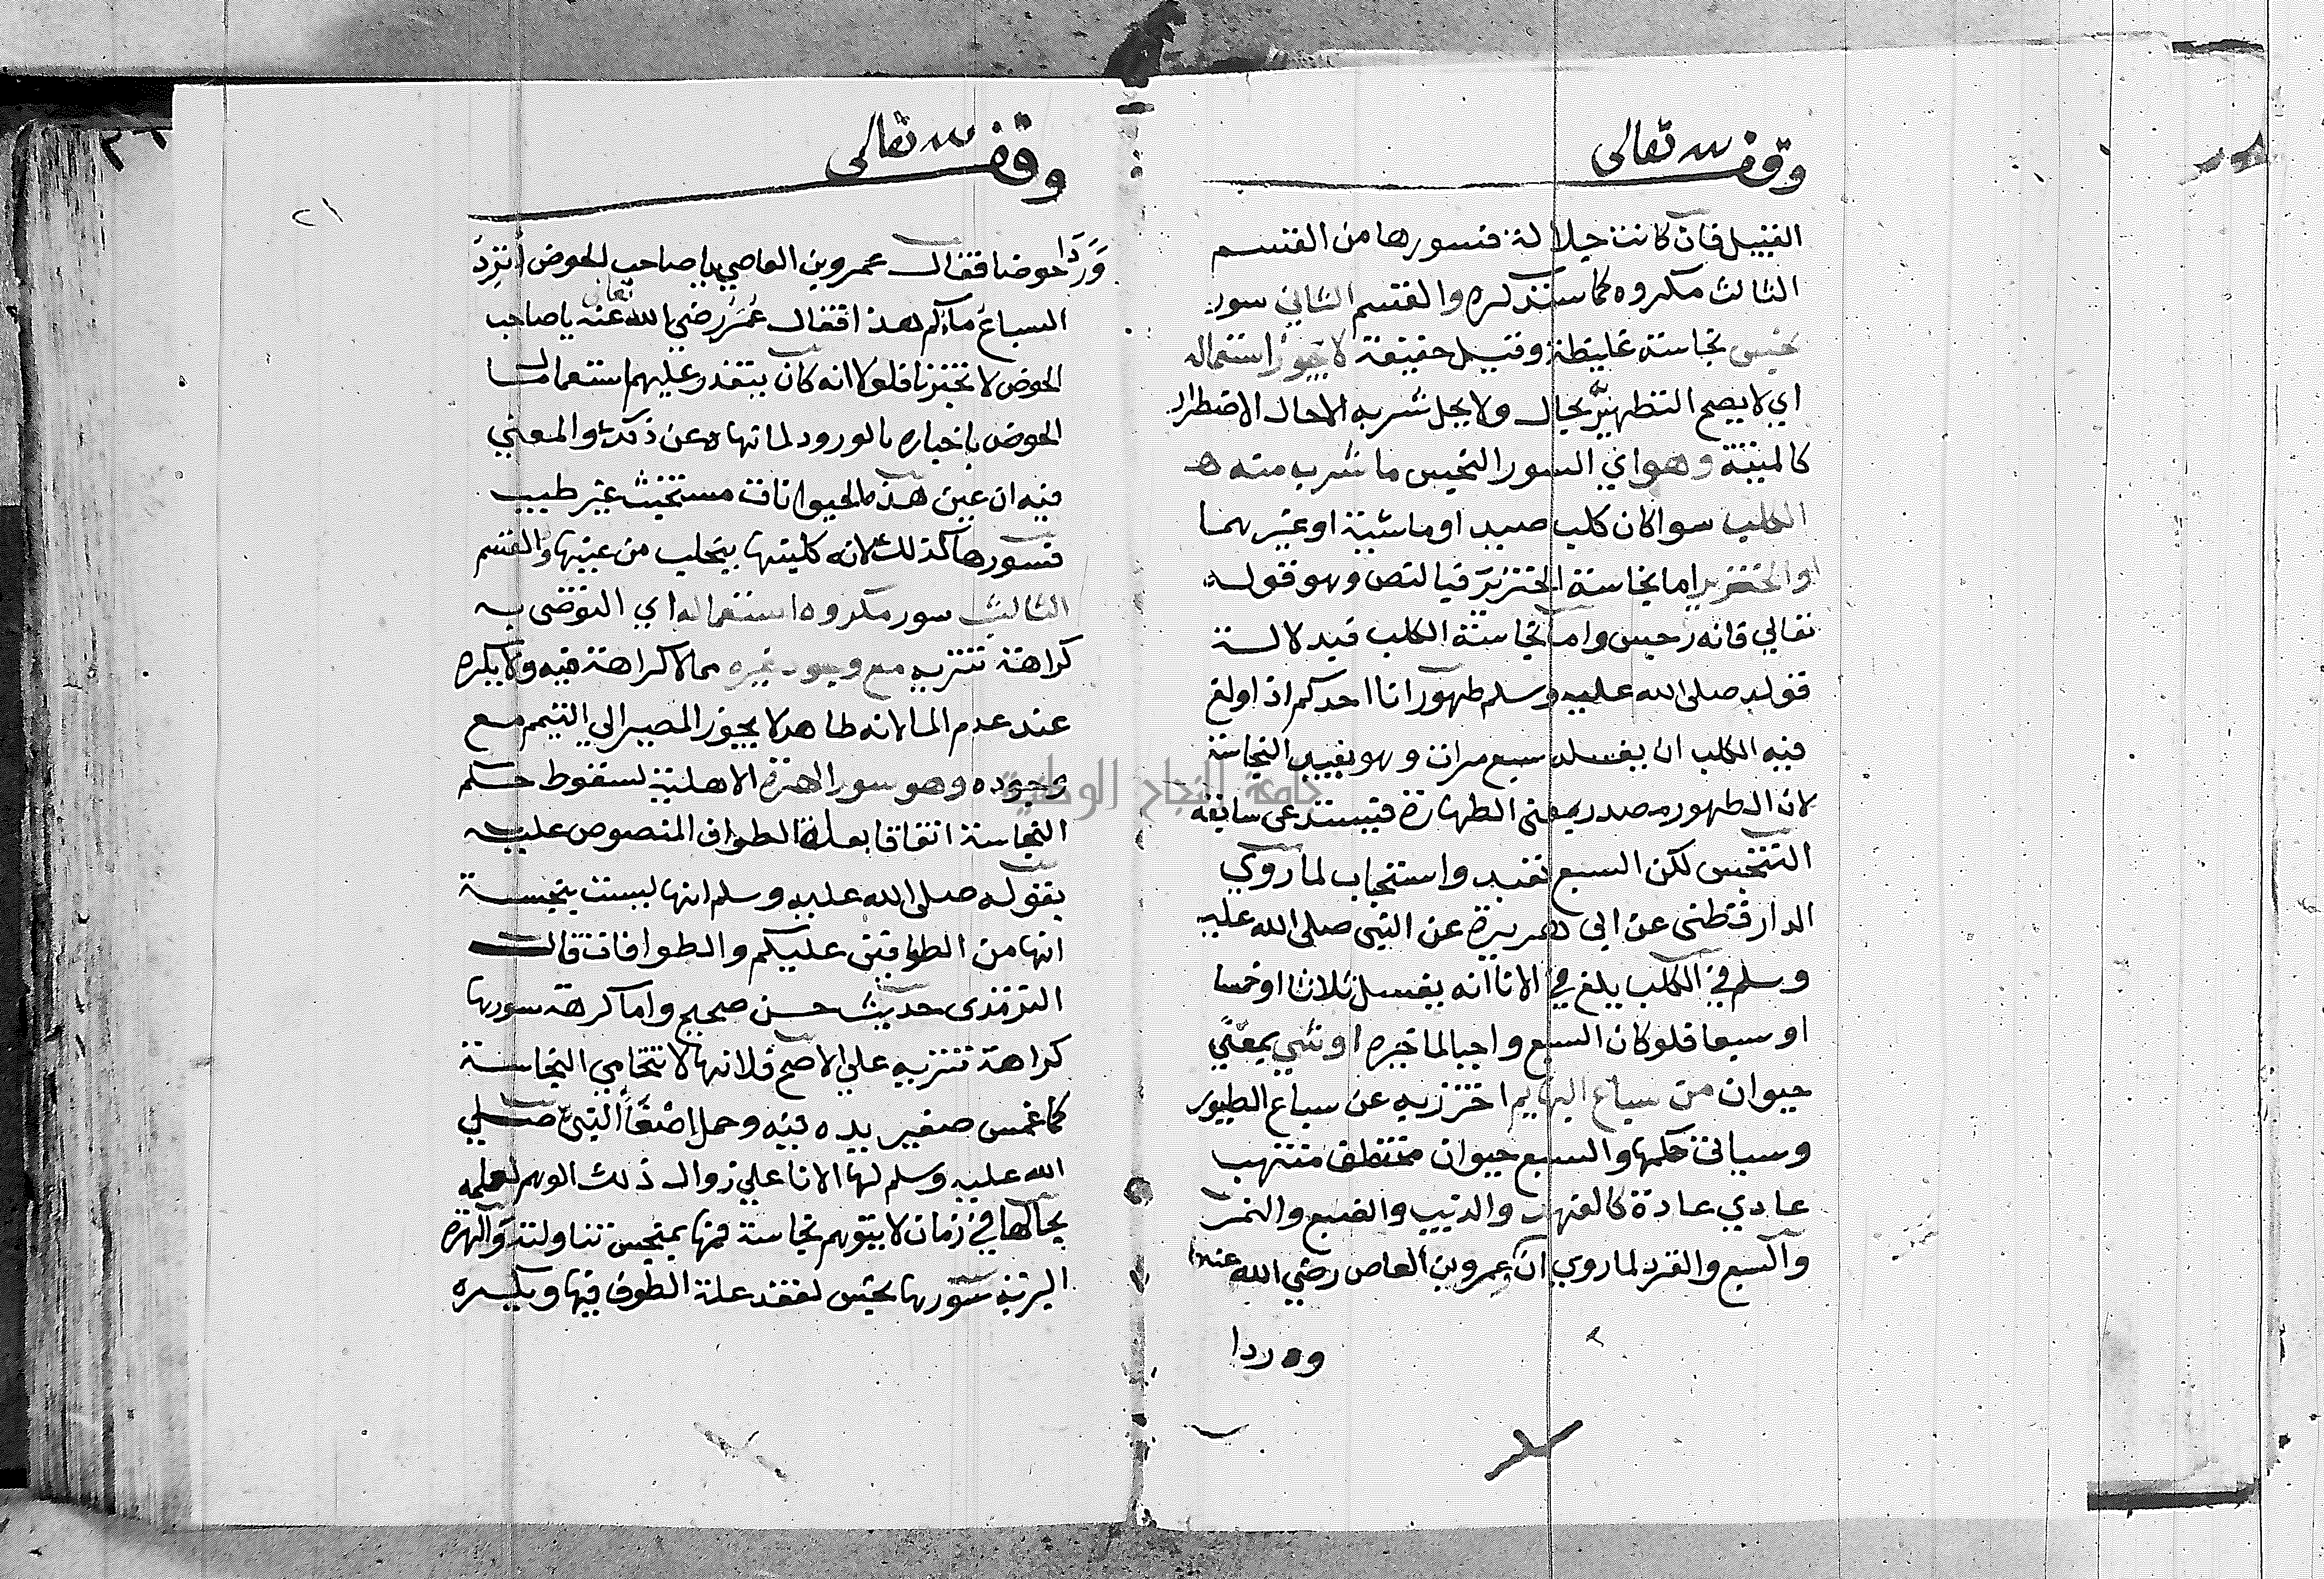 وقف لله تعالى
القبيل فان كانت جلالة فسورها من القسم
الثالث مكروه كما سنذكره والقسم الثاني سور
نجس نجاسة غليظة وقيل خفيفة لا يجوز استعماله
اي لا يصح التطهير بحال ولا يحل شربه الا حال الاضطرار
كالميتة وهو اي السور النجس ما شرب منه
الكلب سوا كان كلب صيد او ماشية او غيرهما
او الخنزير اما نجاسة الخنزير فبالنص وهو قوله
تعالي فانه رجس واما نجاسة الكلب فبدلالة
قوله صلى الله عليه وسلم طهور انا احدكم اذا ولغ
فيه الكلب ان يغسله سبع مرات وهو يفيد النجاسة
لان الطهور مصدر بمعنى الطهارة فيستدعى سابقة
التنجس لكن السبع تعبد واستحباب لما روي
الدارقطنى عن ابى هريرة عن النبى صلى الله عليه
وسلم في الكلب يلغ في الانا انه يغسل ثلاثا او خمسا
او سبعا فلو كان السبع واجبا لما خيره او شي بمعني
حيوان من سباع البهايم احترز به عن سباع الطيور
وسياتى حكمها والسبع حيوان مختطف منتهب
عادي عادة كالفهد والذيب والضبع والنمر
والسبع والقرد لما روي ان عمر وعمرو بن العاص رضي الله عنهما
وردا
وقف لله تعالى
٢١
وَرَدَا حوضا فقال عمرو بن العاصي يا صاحب الحوض أترد
السباع ماءكم هذا فقال عُمَرُ رضي الله تعالى عنه يا صاحب
الحوض لا تخبرنا فلولا انه كان يتعذر عليهم استعمال ما
الحوض باخباره بالورود لما نهاه عن ذلك والمعني
فيه ان عين هذه الحيوانات مستخبث غير طيب
فسورها كذلك لانه كليتها يتحلب من عينها والقسم
الثالث سور مكروه استعماله اي التوضى به
كراهة تنزيه مع وجود غيره مما لا كراهة فيه ولا يكره
عند عدم الما لانه طاهر لا يجوز المصير الي التيمم مع
وجوده وهو سور الهرة الاهلية لسقوط حكم
النجاسة اتفاقا بعلة الطواف المنصوص عليه
بقوله صلى الله عليه وسلم انها ليست بنجسة
انها من الطوافين عليكم والطوافات قال
الترمذى حديث حسن صحيح واما كرهة سورها
كراهة تنزيه علي الاصح فلانها لا تتحامي النجاسة
كما غمس صغير يده فيه وحمل اصغا النبى صلي
الله عليه وسلم لها الانا علي زوال ذلك الوهم لعلمه
بحالها في زمان لا يتوهم نجاسة فمها بمنجس تناولته والهرة
البرية سورها نجس لفقد علة الطوف فيها ويكره
جامعة النجاح الوطنية